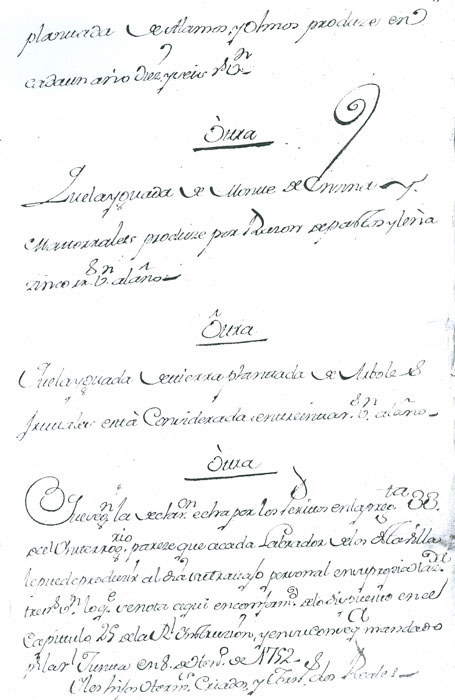 plantada de Alamos, y Olmos produze en
cada un año diez, y seis rs. vn.
Otra
Que la yguada de Monte de Enzina y
Matorrales produze por Razon de pasto, y leña
zinco rs. vn. al año
Otra
Que la yguada de tierra plantada de Arboles
frutales está Considerada en treinta rs. vn. al año
Otra
Que segn. la declaron. echa por los Peritos en la pregta. 38.
del Ynterrogrio. pareze que a cada Labrador de los de la Villa
le puede produzir al dia su trabajo personal en su propia
tres rs. vn. lo qe. se nota aqui en conformd. de lo dispuesto en el
Capitulo 25 de la Rl. Ynstruzion, y en su conseqa. mandado
pr. la Rl. Junta en 8. de de 1752.
A los hijos Criados, y dos Reales